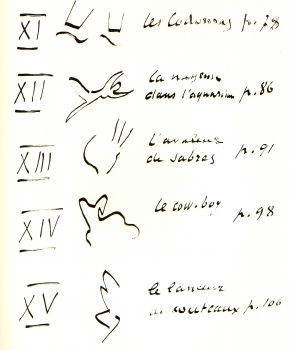 XI les Codomas p. 78
XII la nageuse
dans l'aquarium p. 86
XIII l'avaleur
de sabres p. 91
XIV le cow-boy p. 98
XV le lanceur
de couteaux p. 106